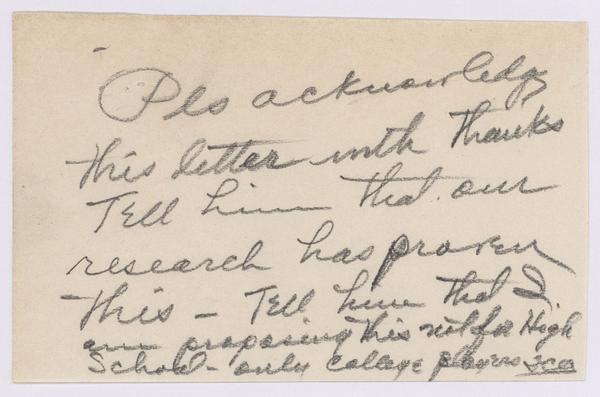 Pls acknowledge
this letter with thanks
Tell him that our
research has proven
this - Tell him that I
am proposing this not for High
School - only College players